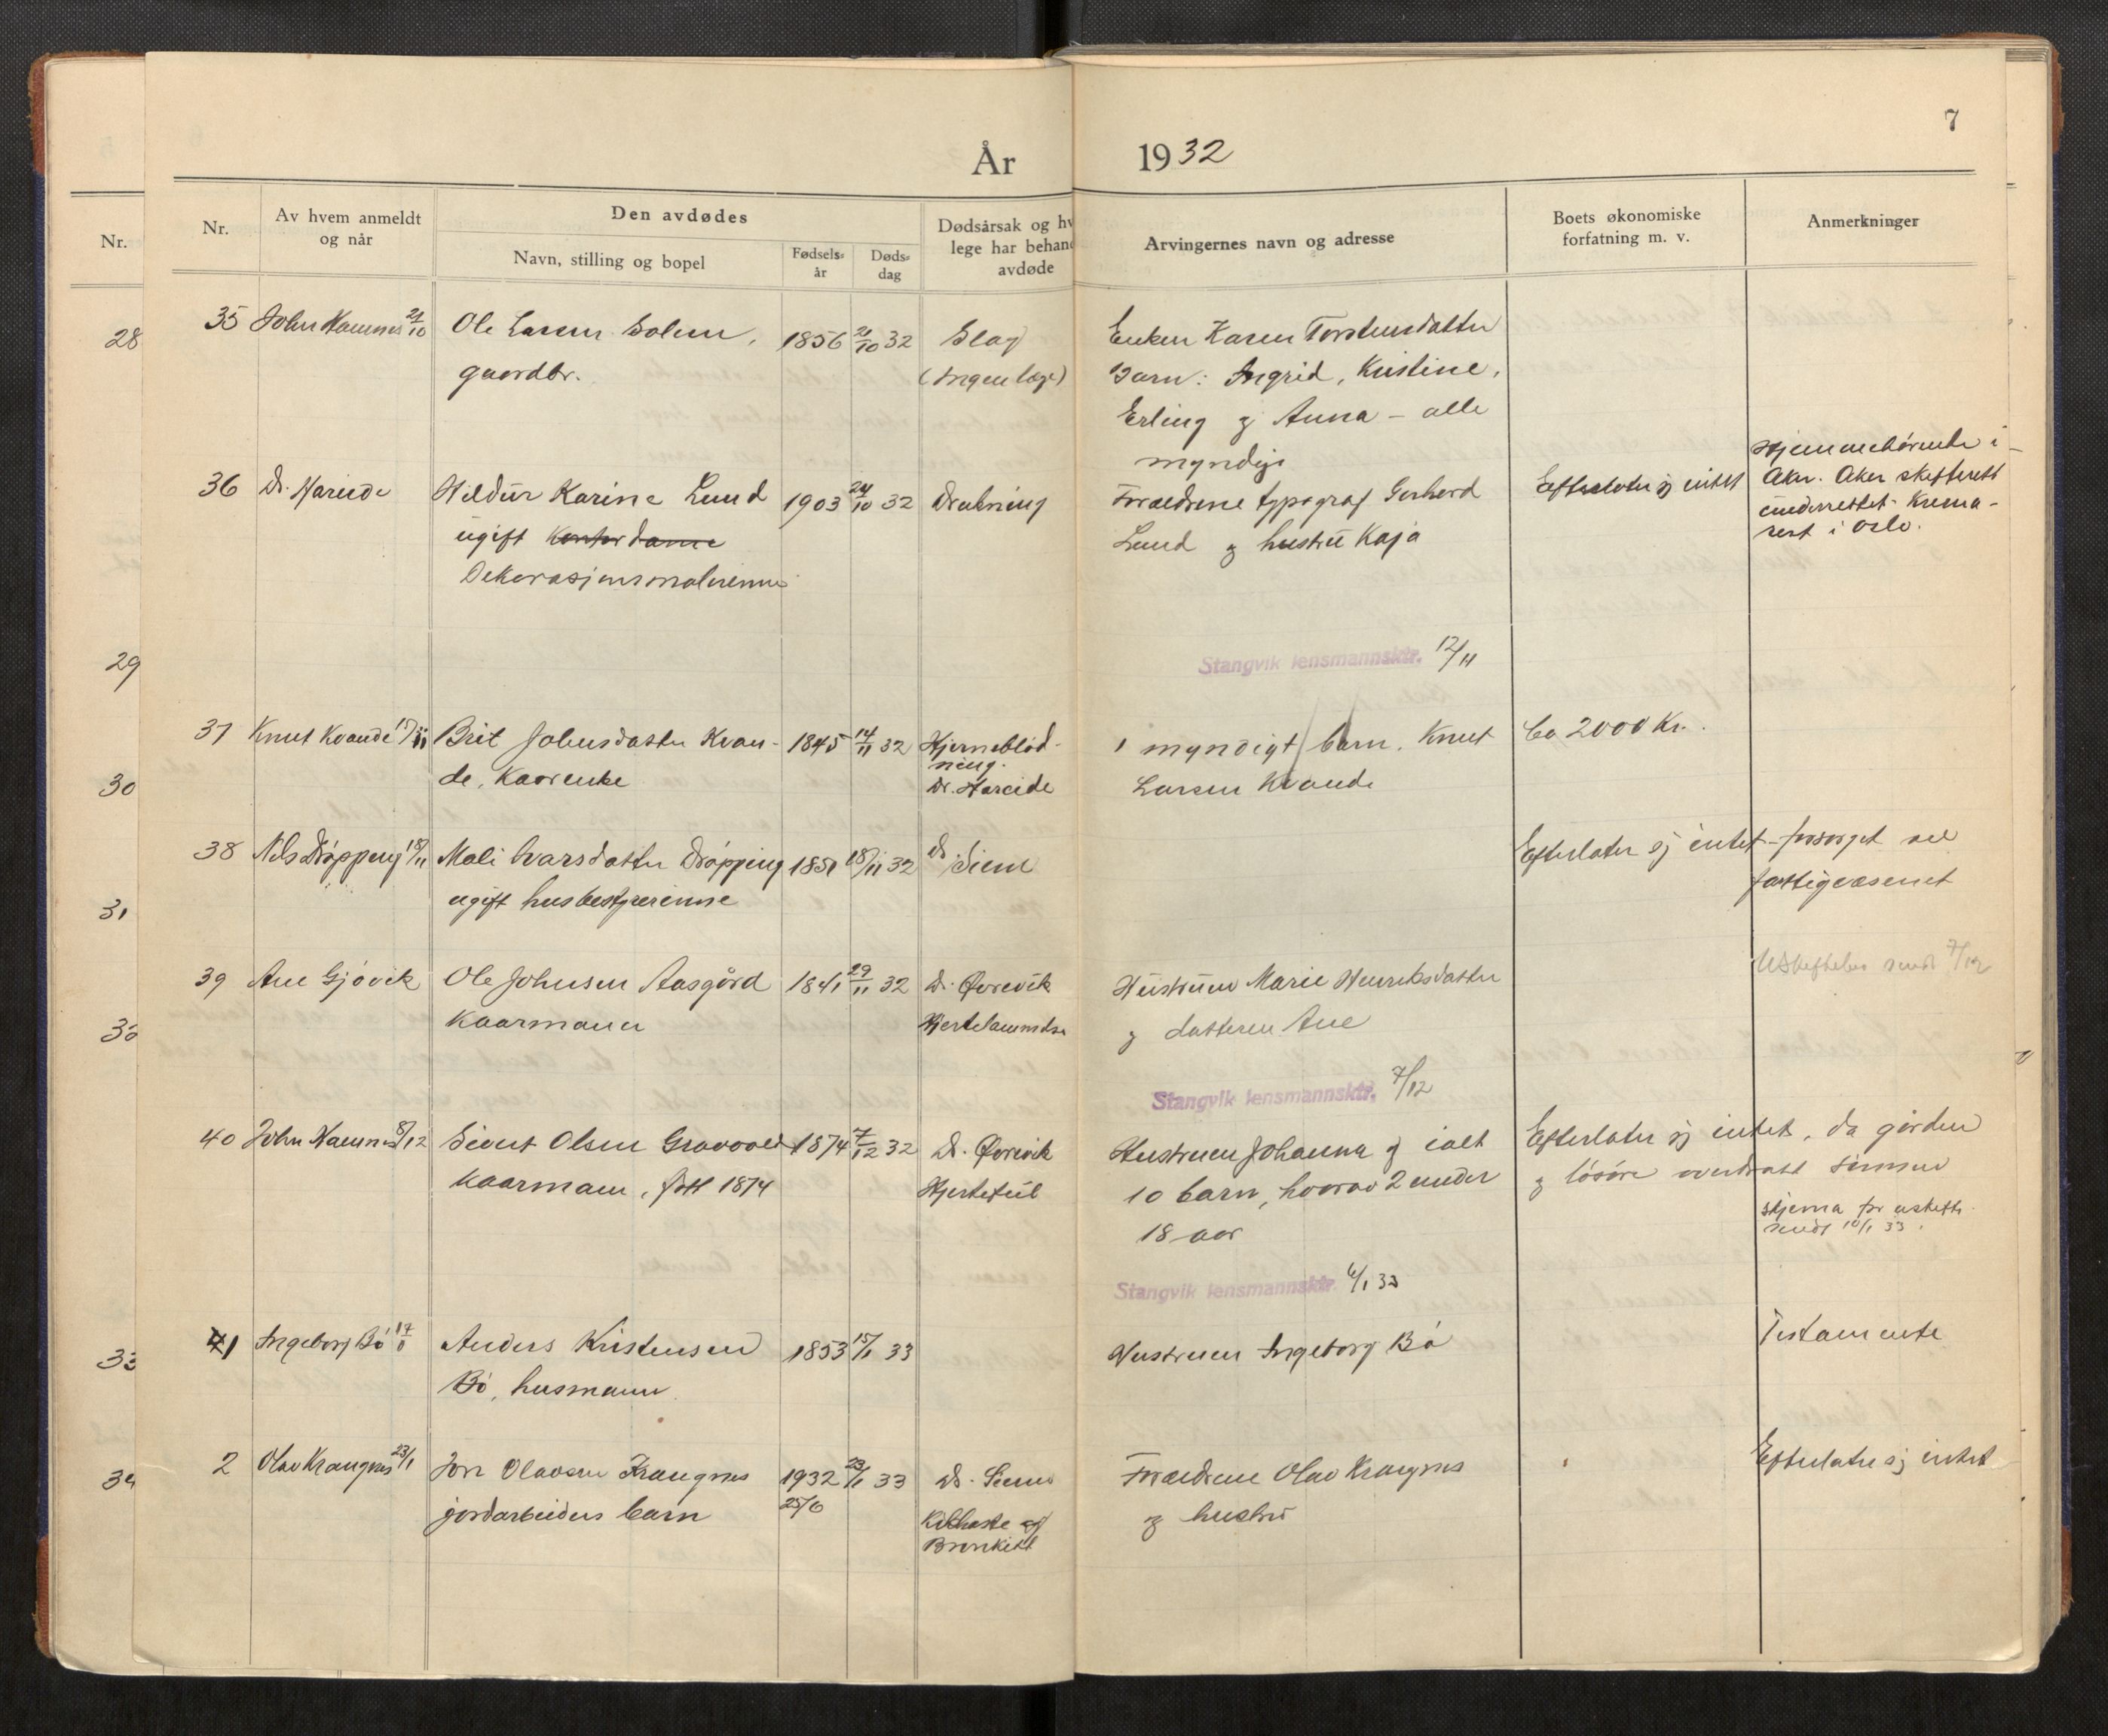 7
År 1932
Nr.
Nr. Av hvem anmeldt og når
Den avdødes
Navn, stilling og bopel
Fødsels- år
Døds- dag
Dødsårsak og hv
lege har behand
avdøde
Arvingernes navn og adresse
Boets økonomiske
forfatning m. v.
Anmerkninger
28
29
30
31
32
33
34
35 John Hamnes 21/10 Ole Larsen Solem, 1856 21/10 32 Slag
gaardbr. (Ingen læge)
Enken Karen Torstensdatter
Barn: Ingrid, Kristine,
Erling og Anna - alle
myndige
36 Dr. Hareide Hildur Karine Lund 1903 24/10 32 Drukning
ugift Kontordame
Dekorasjonsmalerinne
Forældrene typograf Gerhard
Lund og hustru Kaja
Efterlater sj intet
Hjemmehørende i
Aker. Aker skifterett
underrettet. Krema-
sert i Oslo.
Stangvik lensmannsktr. 12/11
37 Knut Kvande Brit Johnsdatter Kvan- 1845 14/11 32 Hjerneblød-
de, Kaarenke ning.
Dr. Hareide
1 myndigt barn. Knut
Larsen Kvande
Ca 2000 Kr.
38 Nils Drøpping 18/11 Mali Ivarsdatter Drøpping 1851 18/11 32 Dr. Siem
ugift husbestyrerinne
Efterlater sj intet - forsørget ved
fattigvæsenet
39 Ane Gjøvik Ole Johnsen Aasgård 1841 29/11 32 Dr. Øvrevik
Kaarmann
Hustruen Marie Henriksdatter
og datteren Ane
sendt 7/12
Stangvik lensmannsktr. 7/12
40 John Hamnes 8/12 Sivert Olsen Gravvold 1874 7/12 32 Dr. Øvrevik
Kaarmann, født 1874 Hjertefeil
Hustruen Johanna og ialt
10 barn, hvorav 2 under
18 aar
Efterlater sj intet, da gården
og løsøre overdratt sønnen
skjema for uskifte
sendt 10/1 33.
Stangvik lensmannsktr. 6/1 33
1 Ingeborg Bø 17 Anders Kristensen 1853 15/1 33
Bø, husmann
Hustruen Ingeborg Bø
Testamente
2 Olav Krangnes 23/1 Jon Olavsen Krangnes 1932 23/1 33 Dr. Siem
jordarbeiders barn 25/6 Kikhoste og
Bronkitt
Forældrene Olav Krangnes
og hustru
Efterlater sj intet